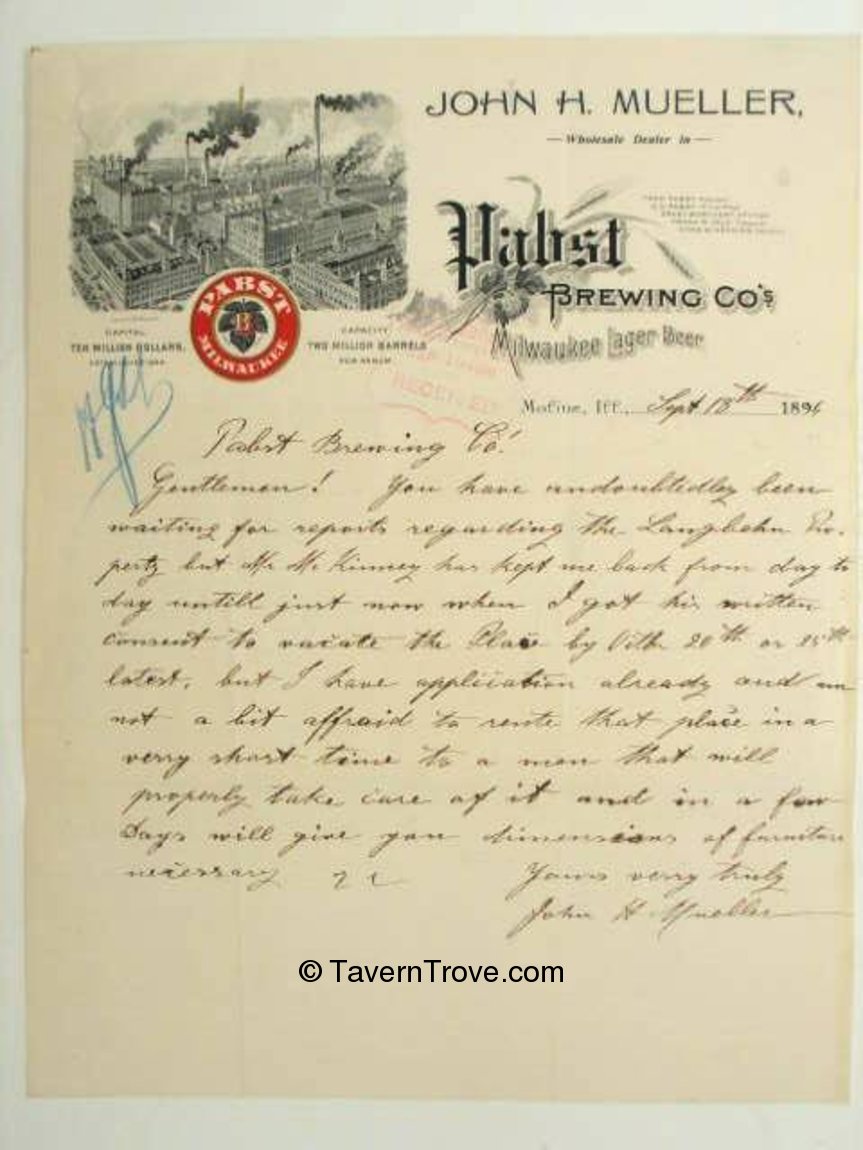 JOHN H. MUELLER,
— Wholesale Dealer in —
Pabst
BREWING CO'S
Milwaukee Lager Beer
PABST
B
MILWAUKEE
CAPITAL
TEN MILLION DOLLARS.
CAPACITY
TWO MILLION BARRELS
PER ANNUM.
RECEIVED
Moline, Ill., Sept 18th 1894
Pabst Brewing Co!
Gentlemen! You have undoubtedley been
waiting for reports regarding the Langbehn Pro-
perty but Mr Mc Kinney has kept me back from day to
day untill just now when I got his written
consent to vacate the Place by 20th or 25th
latest, but I have application already and am
not a bit affraid to rente that place in a
verry short time to a man that will
properly take care of it and in a few
Days will give you dimensions of furniture
necessary
Yours verry truly
John H. Mueller
© TavernTrove.com